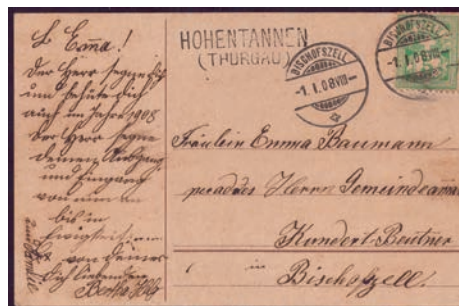 L. Emma!
Der Herr segne dich
und behüte dich
auch im Jahre 1908
der Herr segne
deinen Ausgang
und Eingang
von nun an
bis in
Ewigkeit
von deiner
dich liebenden
Bertha
HOHENTANNEN
(THURGAU)
BISCHOFSZELL
-1.I.08VIII-
BISCHOFSZELL
-1.I.08VIII-
Fräulein Emma Baumann
Herrn Gemeindeamma
Kundert-Beutner
in
Bischofzell.